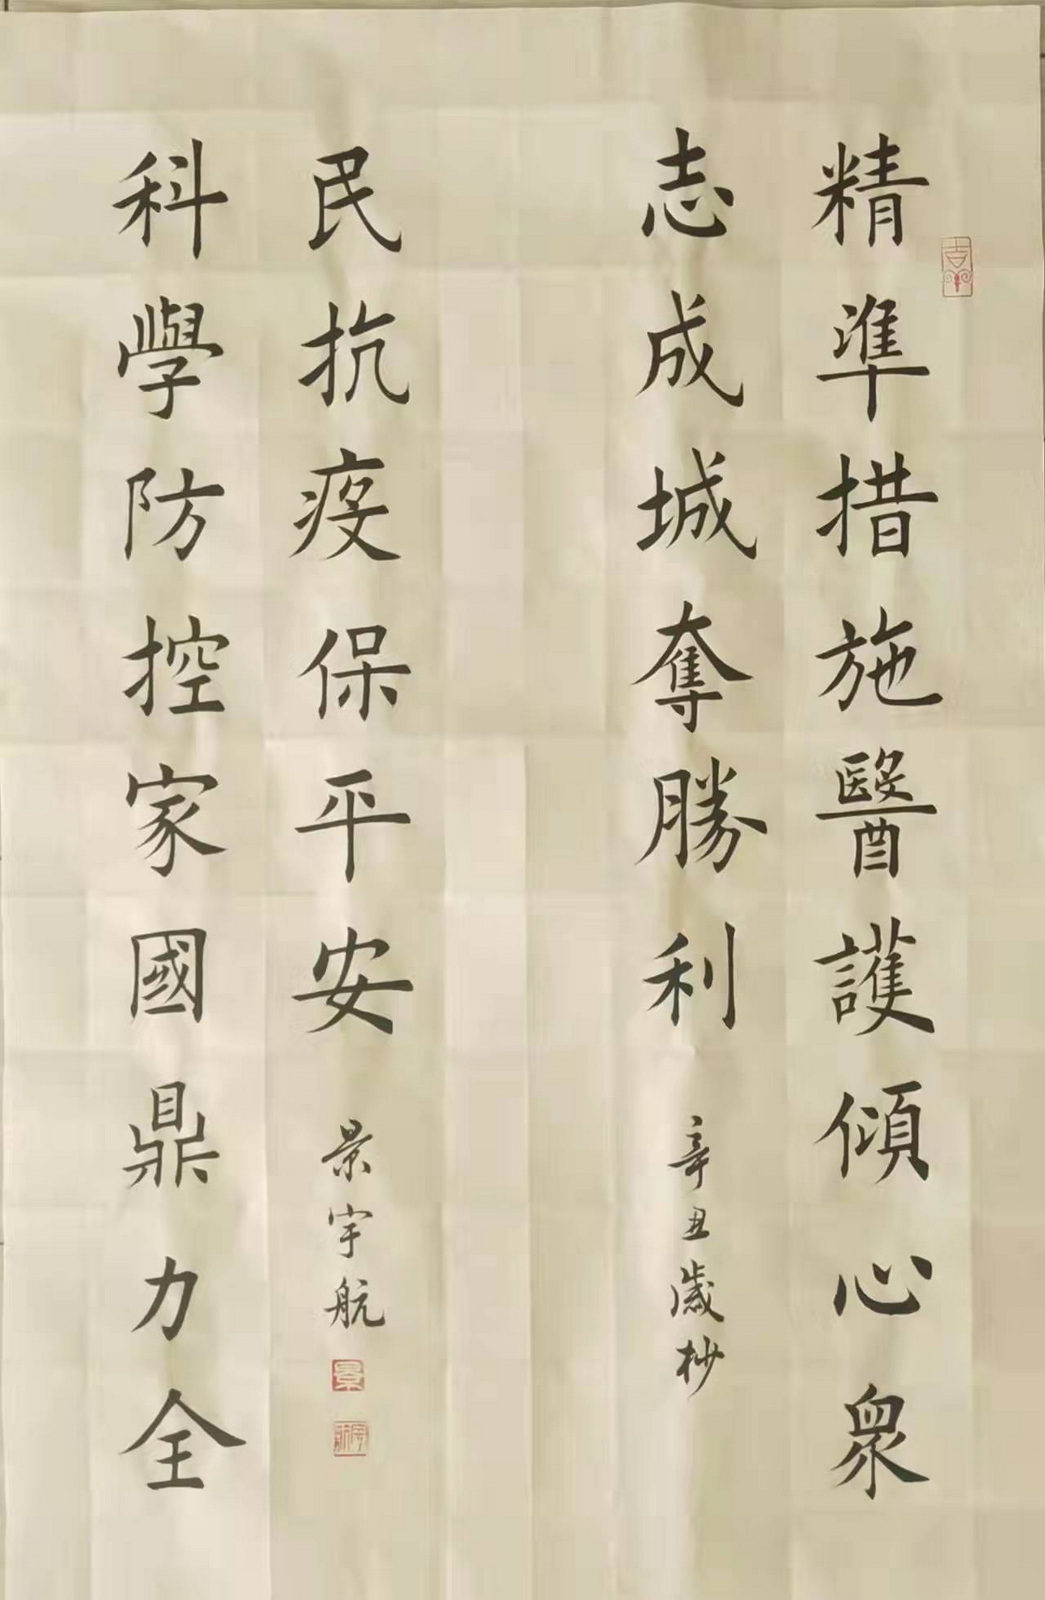 吉羊
精準措施醫護傾心眾
志成城奪勝利
辛丑歲杪
科學防控家國鼎力全
民抗疫保平安
景宇航
景
宇航